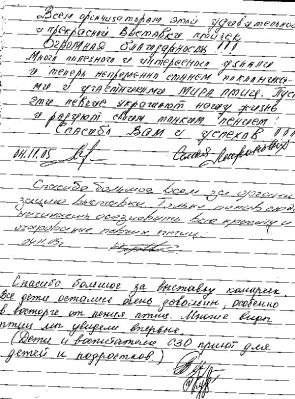 Всем организаторам этой удивительной
и прекрасной выставки птичек
Огромная благодарность!!!
Много полезного и интересного узнали
и теперь непременно станем поклонника-
ми и угодниками мира птиц. Пусть
эти певчие украшают нашу жизнь
и радуют своим тонким пением!
Спасибо Вам и успехов!!!
04.11.05 Семья
Спасибо большое всем за органи-
зацию выставки. Только
начинаешь осознавать всю красоту и
очарование певчих птиц.
04.11.05г.
Спасибо большое за выставку канареек.
Все дети остались очень довольны, особенно
в восторге от пения птиц. Многие виды
птиц мы увидели впервые.
(Дети и воспитатели СЗО приют для
детей и подростков)